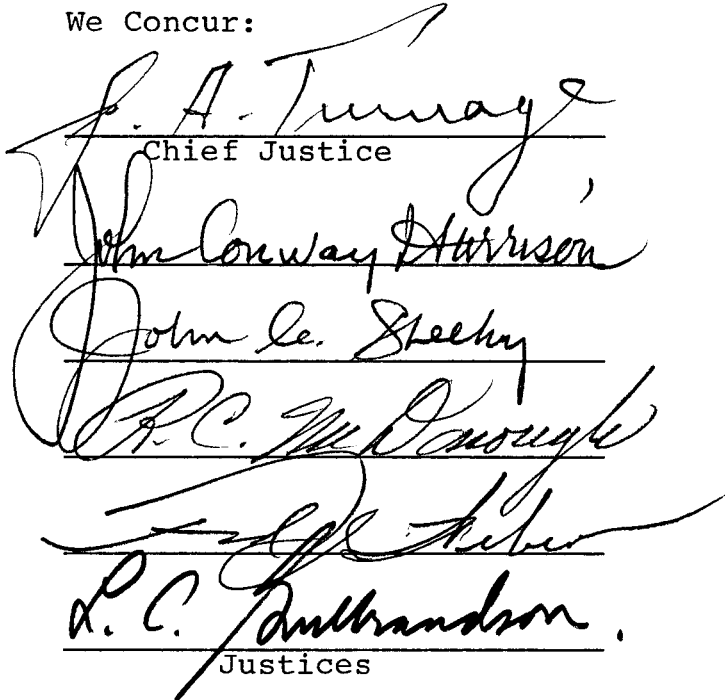 We Concur:
J. A. Turnage
Chief Justice
John Conway Harrison
John C. Sheehy
R. C. McDonough
L. C. Gulbrandson.
Justices